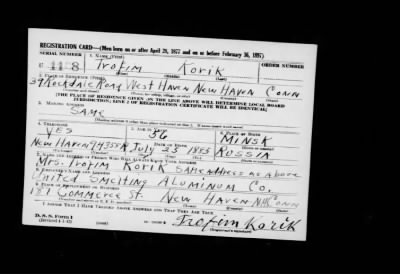 REGISTRATION CARD—(Men born on or after April 28, 1877 and on or before February 16, 1897)
SERIAL NUMBER 1. NAME (Print) ORDER NUMBER
U 1188 Trofim Korik
(First) (Middle) (Last)
2. PLACE OF RESIDENCE (Print)
Rockdale Road West Haven New Haven Conn
[THE PLACE OF RESIDENCE GIVEN ON THE LINE ABOVE WILL DETERMINE LOCAL BOARD
JURISDICTION; LINE 2 OF REGISTRATION CERTIFICATE WILL BE IDENTICAL]
3. MAILING ADDRESS
SAME
4. TELEPHONE 5. AGE IN YEARS 6. PLACE OF BIRTH
YES 56 MINSK
DATE OF BIRTH
New Haven July 25 1885 RUSSIA
7. NAME AND ADDRESS OF PERSON WHO WILL ALWAYS KNOW YOUR ADDRESS
Mrs. Trofim Korik same address as above
8. EMPLOYER'S NAME AND ADDRESS
United Smelting Aluminum Co.
9. PLACE OF EMPLOYMENT OR BUSINESS
187 Commerce St. New Haven NH Conn
I AFFIRM THAT I HAVE VERIFIED ABOVE ANSWERS AND THAT THEY ARE TRUE.
D. S. S. Form 1
(Revised 4-1-42) Trofim Korik